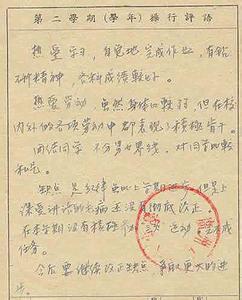 第二学期(学年)操行评语
热爱学习,自觉地完成作业,有钻
研精神,各科成绩较好。
热爱劳动,虽然身体较弱,但在校
内外的各项劳动中都表现了积极肯干。
团结同学 不分男女界线,对同学比较
和气。
缺点 是纪律 比上学期进步,但是上
课爱讲话的毛病还没有彻底改正。
在本学期没有积极
任务。
今后要继续改正缺点 争取更大的进
步。